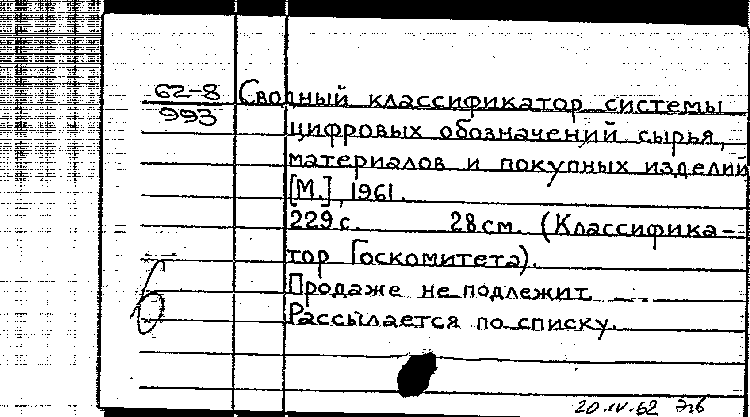 62-8 Сводный классификатор системы
993
цифровых обозначений сырья,
материалов и покупных изделий
[М.], 1961.
229 с. 28 см. (Классифика-
тор Госкомитета).
Продаже не подлежит
Рассылается по списку.
б
20.IV.62 Экз